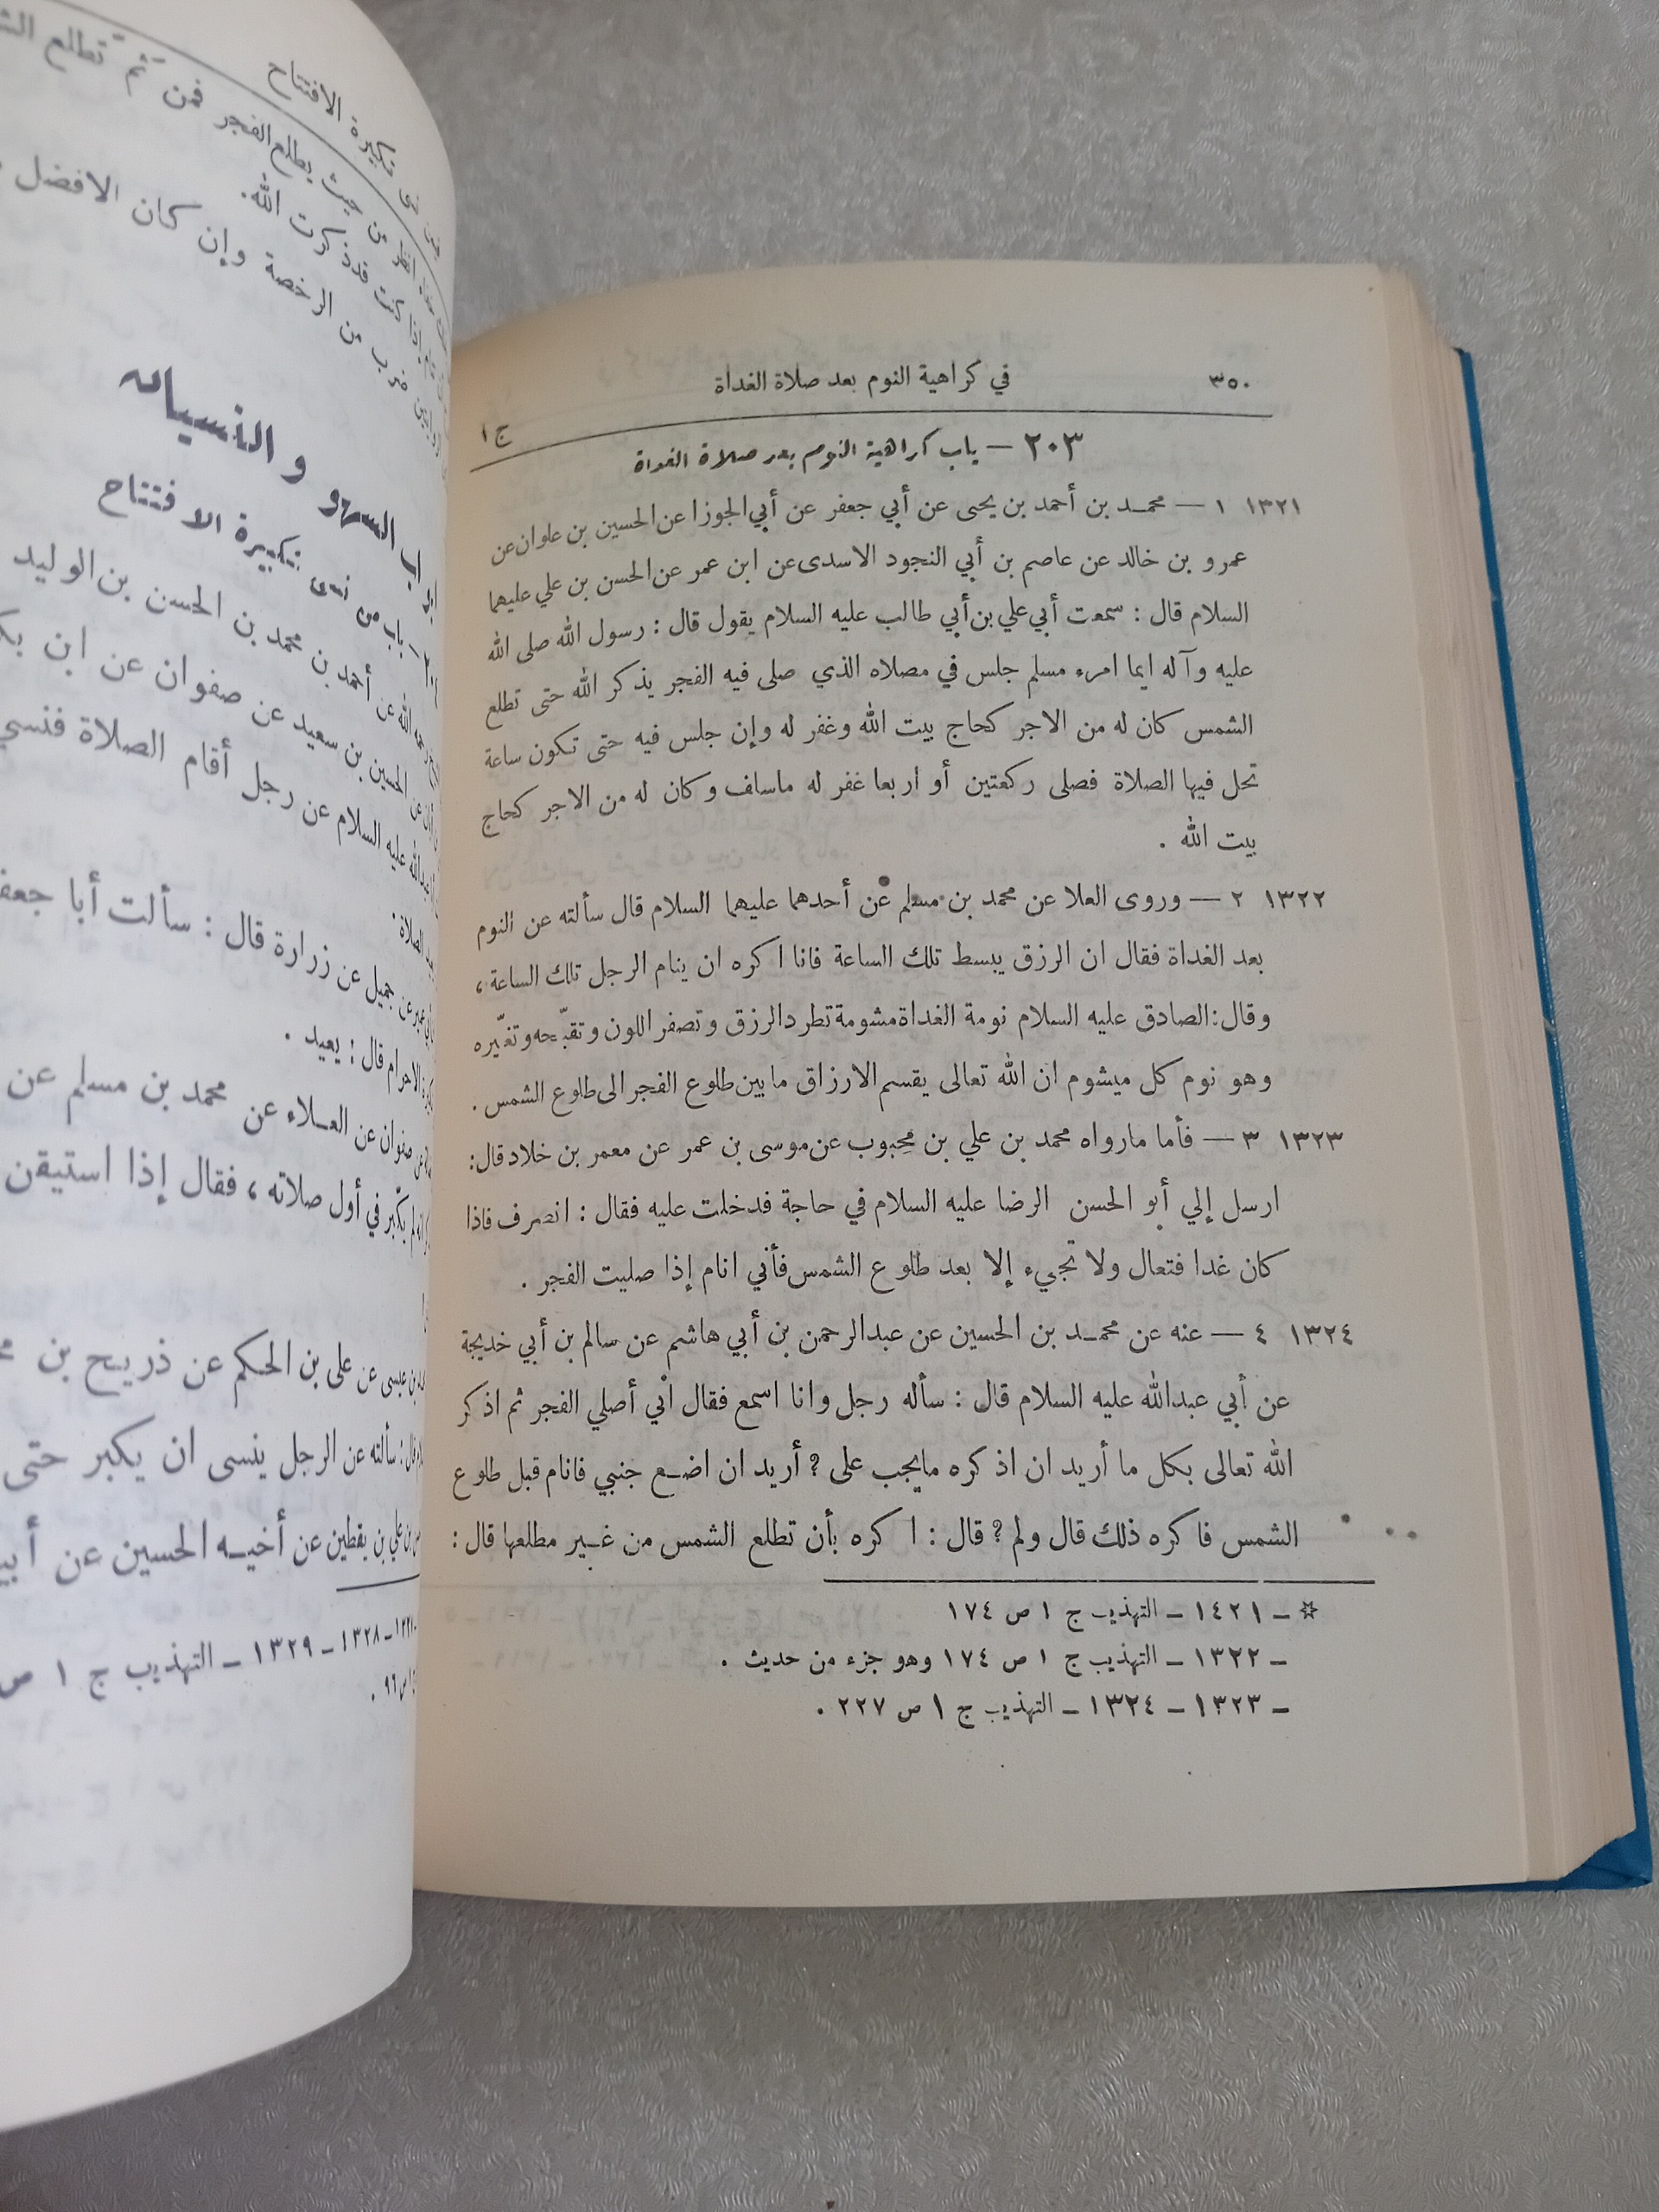 ٣٥٠ في كراهية النوم بعد صلاة الغداة
ج ١
٢٠٣ — باب كراهية النوم بعد صلاة الغداة
١٣٢١ ١ — محمد بن أحمد بن يحيى عن أبي جعفر عن أبي الجوزا عن الحسين بن علوان عن
عمرو بن خالد عن عاصم بن أبي النجود الاسدى عن ابن عمر عن الحسن بن علي عليهما
السلام قال : سمعت أبي علي بن أبي طالب عليه السلام يقول قال : رسول الله صلى الله
عليه وآله ايما امرء مسلم جلس في مصلاه الذي صلى فيه الفجر يذكر الله حتى تطلع
الشمس كان له من الاجر كحاج بيت الله وغفر له وإن جلس فيه حتى تكون ساعة
تحل فيها الصلاة فصلى ركعتين أو اربعا غفر له ماسلف وكان له من الاجر كحاج
بيت الله .
١٣٢٢ ٢ — وروى العلا عن محمد بن مسلم عن أحدهما عليهما السلام قال سألته عن النوم
بعد الغداة فقال ان الرزق يبسط تلك الساعة فانا اكره ان ينام الرجل تلك الساعة ،
وقال : الصادق عليه السلام نومة الغداة مشومة تطرد الرزق وتصفر اللون وتقبّحه وتغيّره
وهو نوم كل ميشوم ان الله تعالى يقسم الارزاق مابين طلوع الفجر الى طلوع الشمس .
١٣٢٣ ٣ — فأما مارواه محمد بن علي بن محبوب عن موسى بن عمر عن معمر بن خلاد قال :
ارسل إلي أبو الحسن الرضا عليه السلام في حاجة فدخلت عليه فقال : انصرف فاذا
كان غدا فتعال ولا تجيء إلا بعد طلوع الشمس فأني انام إذا صليت الفجر .
١٣٢٤ ٤ — عنه عن محمد بن الحسين عن عبدالرحمن بن أبي هاشم عن سالم بن أبي خديجة
عن أبي عبدالله عليه السلام قال : سأله رجل وانا اسمع فقال اني أصلي الفجر ثم اذكر
الله تعالى بكل ما أريد ان اذكره مايجب على ? أريد ان اضع جنبي فانام قبل طلوع
الشمس فاكره ذلك قال ولم ? قال : اكره بأن تطلع الشمس من غير مطلعها قال :
☆ ـ ١٤٢١ ـ التهذيب ج ١ ص ١٧٤
ـ ١٣٢٢ ـ التهذيب ج ١ ص ١٧٤ وهو جزء من حديث .
ـ ١٣٢٣ ـ ١٣٢٤ ـ التهذيب ج ١ ص ٢٢٧ .
تكبيرة الافتتاح
من حيث يطلع الفجر فمن ثم تطلع
ذكرت الله .
ضرب من الرخصة وإن كان الافضل
السهو والنسيان
باب من نسى تكبيرة الافتتاح
الله عن أحمد بن محمد بن الحسن بن الوليد
الحسين بن سعيد عن صفوان عن ابن
عليه السلام عن رجل أقام الصلاة فنسي
الصلاة .
عن جميل عن زرارة قال : سألت أبا
الاحرام قال : يعيد .
صفوان عن العلاء عن محمد بن مسلم عن
يكبّر في أول صلاته ، فقال إذا استيقن
بن عيسى عن علي بن الحكم عن ذريح بن
سألته عن الرجل ينسى ان يكبر حتى
بن علي بن يقطين عن أخيه الحسين عن
ـ ١٣٢٨ ـ ١٣٢٩ ـ التهذيب ج ١ ص
ص ٩٦ .